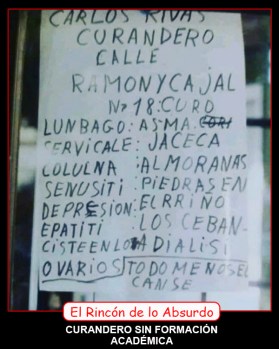 CARLOS RIVAS
CURANDERO
CALLE
RAMONYCAJAL
Nº 18: CURO
LUNBAGO: ASMA
CERVICALE: JACECA
COLULNA: ALMORANAS
SENUSITI: PIEDRAS EN
DEPRESION: EL RIÑO
EPATITI: LOS CEBAN-
CISTEENLOA DIALISI
OVARIOS TODO MENOS EL
CANSE
El Rincón de lo Absurdo
CURANDERO SIN FORMACIÓN
ACADÉMICA